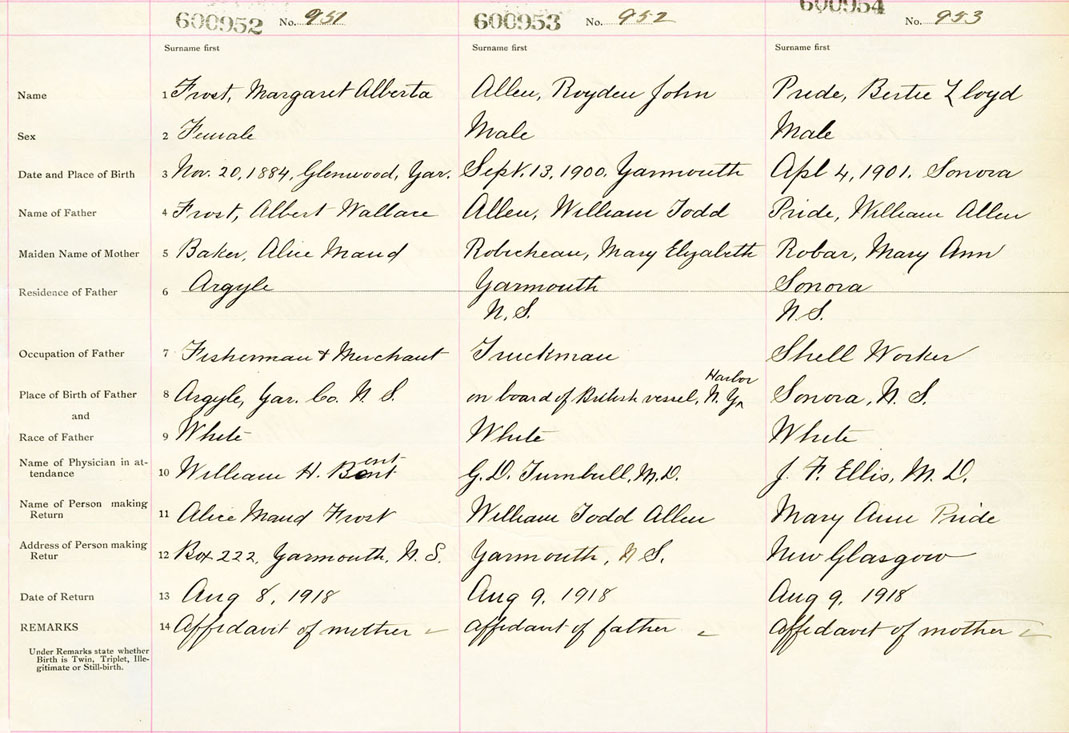 600952 No. 951 600953 No. 952 600954 No. 953
Surname first Surname first Surname first
Name 1 Frost, Margaret Alberta Allen, Royden John Pride, Bertie Lloyd
Sex 2 Female Male Male
Date and Place of Birth 3 Nov. 20, 1884, Glenwood, Yar. Sept. 13, 1900, Yarmouth Apl 4, 1901. Sonora
Name of Father 4 Frost, Albert Wallace Allen, William Todd Pride, William Allen
Maiden Name of Mother 5 Baker, Alice Maud Robicheau, Mary Elizabeth Robar, Mary Ann
Residence of Father 6 Argyle Yarmouth Sonora
N.S. N.S.
Occupation of Father 7 Fisherman & Merchant Truckman Shell Worker
Harbor
Place of Birth of Father 8 Argyle, Yar. Co. N. S. on board of British vessel, N.Y. Sonora, N. S.
and
Race of Father 9 White White White
ent
Name of Physician in at-
tendance 10 William H. Bent G. D. Turnbull, M.D. J. F. Ellis, M. D.
Name of Person making
Return 11 Alice Maud Frost William Todd Allen Mary Ann Pride
Address of Person making
Retur 12 Box 222, Yarmouth, N. S. Yarmouth, N S. New Glasgow
Date of Return 13 Aug 8, 1918 Aug 9, 1918 Aug 9, 1918
REMARKS 14 Affidavit of mother Affidavit of father Affidavit of mother
Under Remarks state whether
Birth is Twin, Triplet, Ille-
gitimate or Still-birth.